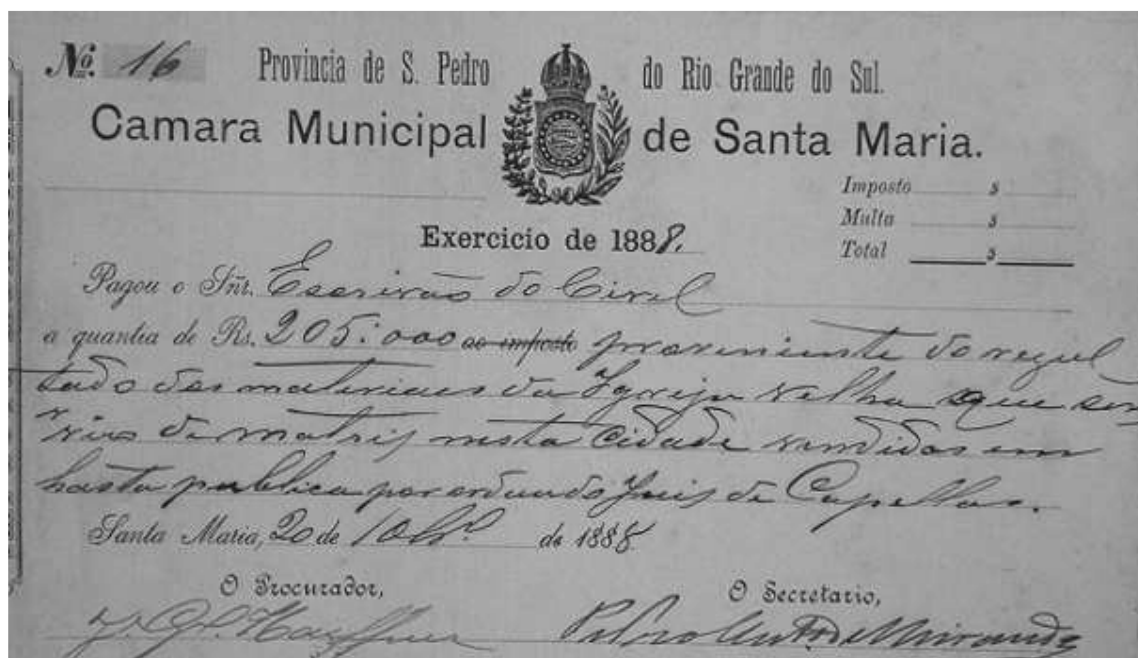 Nº. 16 Provincia de S. Pedro do Rio Grande do Sul.
Camara Municipal de Santa Maria.
Imposto $
Multa $
Total $
Exercicio de 1888.
Pagou o Sñr. Escrivão do Civel
a quantia de Rs. 205:000 ao imposto proveniente do resul
tado dos materiaes da Igreja velha que ser
vio de matriz nesta cidade vendidos em
hasta publica por ordem do Juiz de Capellas.
Santa Maria, 20 de 10br.º de 1888
O Procurador,
O Secretario,
Pedro de Miranda